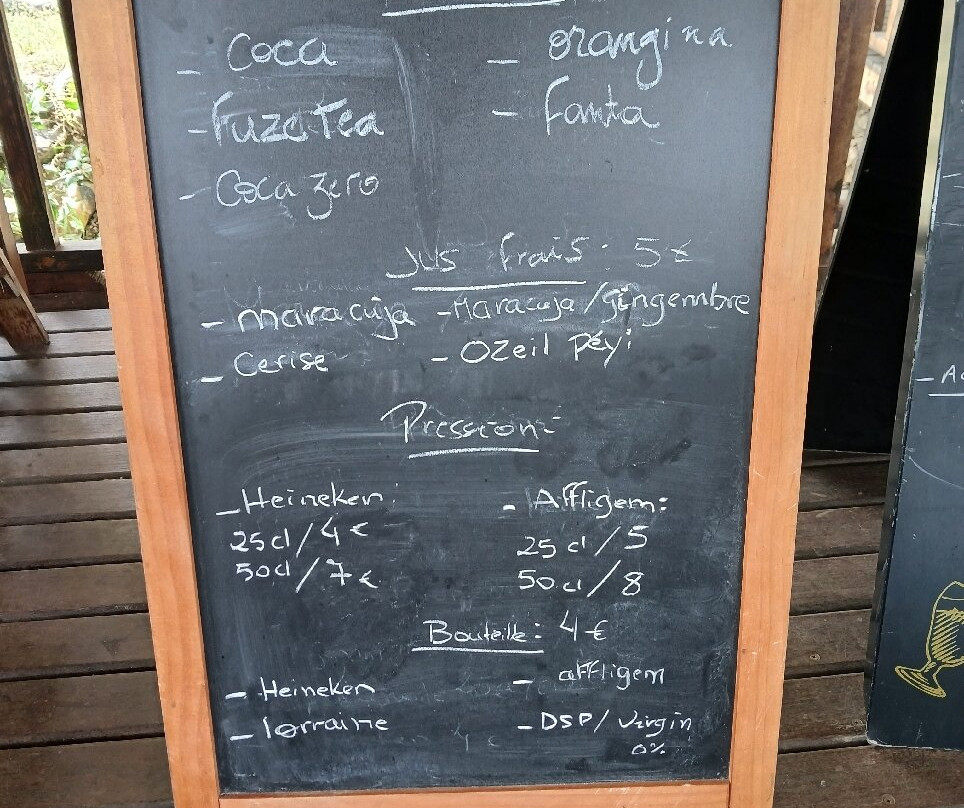 - Coca - orangina
- Fuze Tea - fanta
- Coca zero
Jus frais : 5 €
- maracuja - Maracuja/gingembre
- Cerise - Ozeil péyi
Pression :
- Heineken : - Affligem :
25 cl / 4 € 25 cl / 5
50 cl / 7 € 50 cl / 8
Bouteille : 4 €
- Heineken - affligem
- lorraine - DSP / Virgin
0%